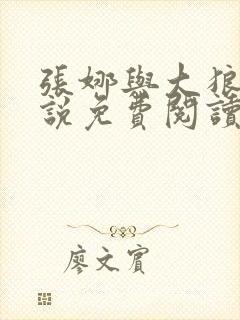 張娜與大狼
說免費閱讀
廖文賓